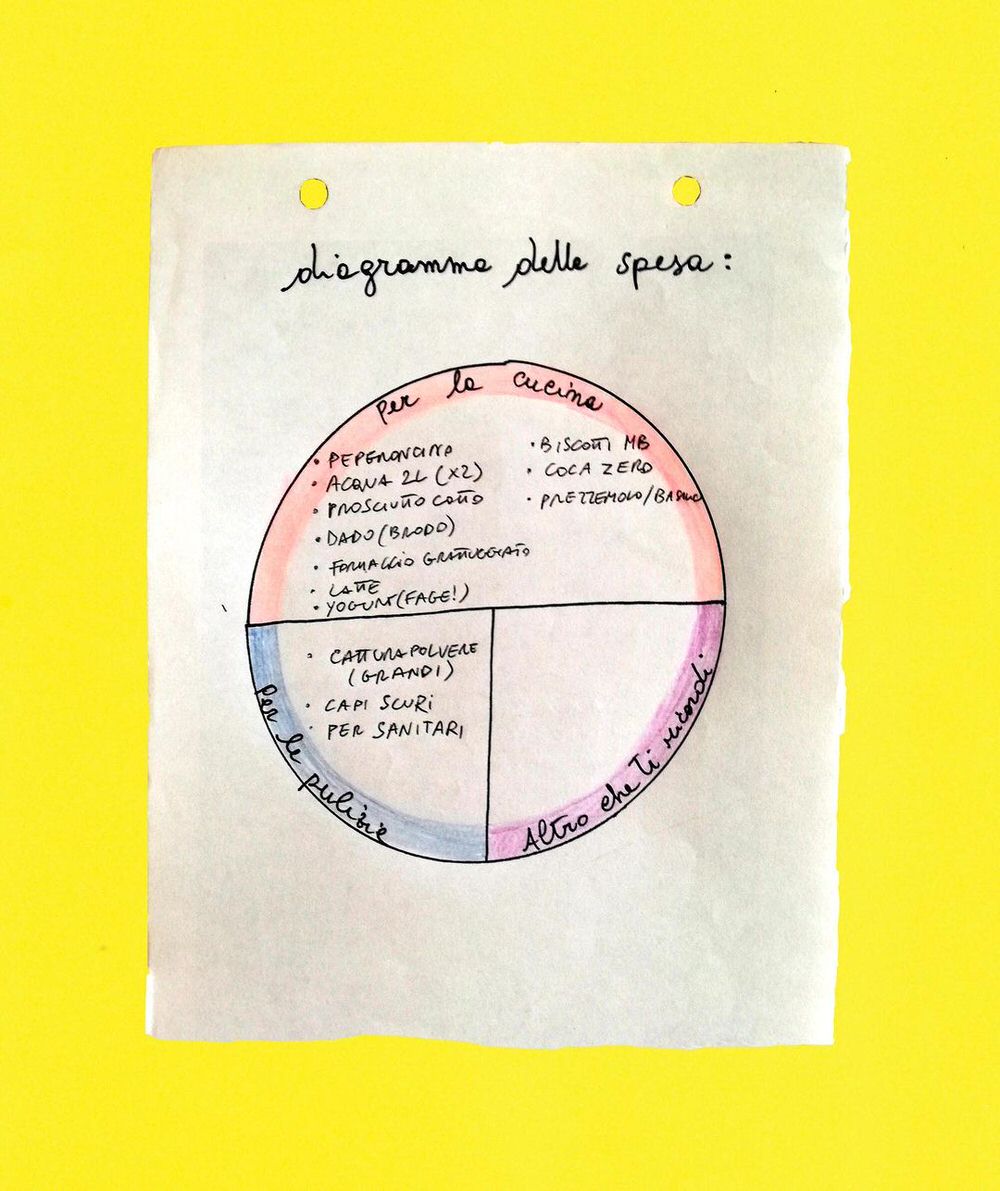 diagramma della spesa:
Per la cucina
• PEPERONCINO
• ACQUA 2L (X2)
• PROSCIUTTO COTTO
• DADO (BRODO)
• FORMAGGIO GRATTUGGIATO
• LATTE
• YOGURT (FAGE!)
• BISCOTTI MB
• COCA ZERO
• PREZZEMOLO/BASILICO
Per le pulizie
• CATTURAPOLVERE
(GRANDI)
• CAPI SCURI
• PER SANITARI
Altro che Ti ricordi